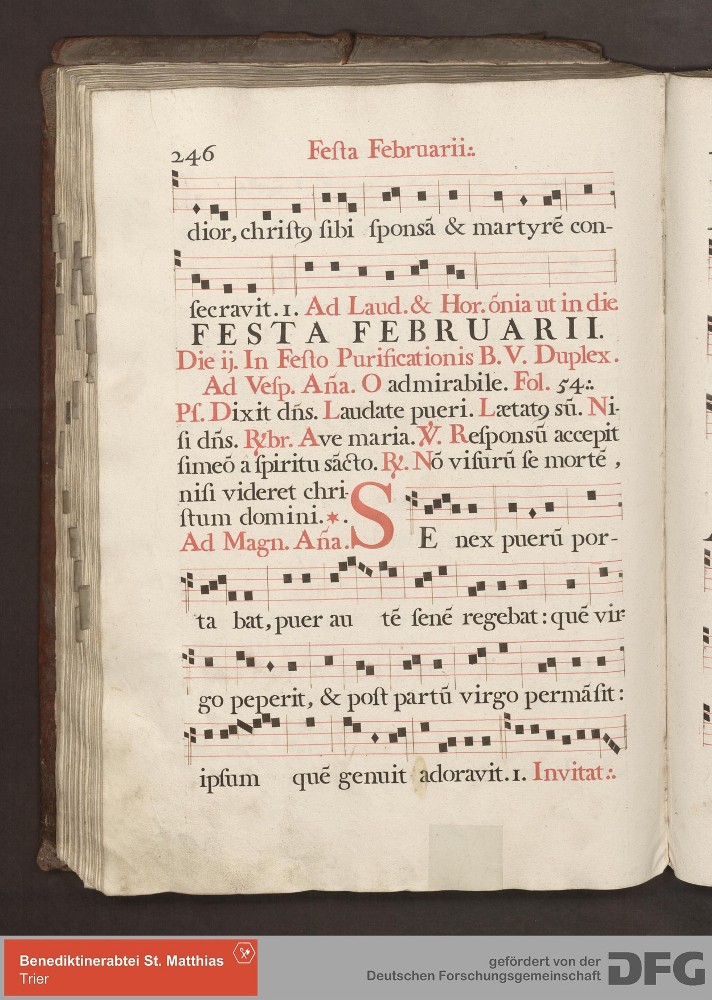 246 Feſta Februarii:.
dior, chriſtꝯ ſibi ſponsã & martyrẽ con-
ſecravit. 1. Ad Laud. & Hor. õnia ut in die
FESTA FEBRUARII.
Die ij. In Feſto Purificationis B. V. Duplex.
Ad Veſp. Aña. O admirabile. Fol. 54:.
Pſ. Dixit dñs. Laudate pueri. Lætatꝯ sũ. Ni-
ſi dñs. ℟br. Ave maria. ℣. Reſponsũ accepit
ſimeõ a ſpiritu sãcto. ℟. Nõ viſurũ ſe mortẽ,
niſi videret chri-
ſtum domini. *.
Ad Magn. Aña. SEnex puerũ por-
ta bat, puer au tẽ ſenẽ regebat: quẽ vir-
go peperit, & poſt partũ virgo permãſit:
ipſum quẽ genuit adoravit. 1. Invitat:.
Benediktinerabtei St. Matthias
Trier
gefördert von der
Deutschen Forschungsgemeinschaft
DFG